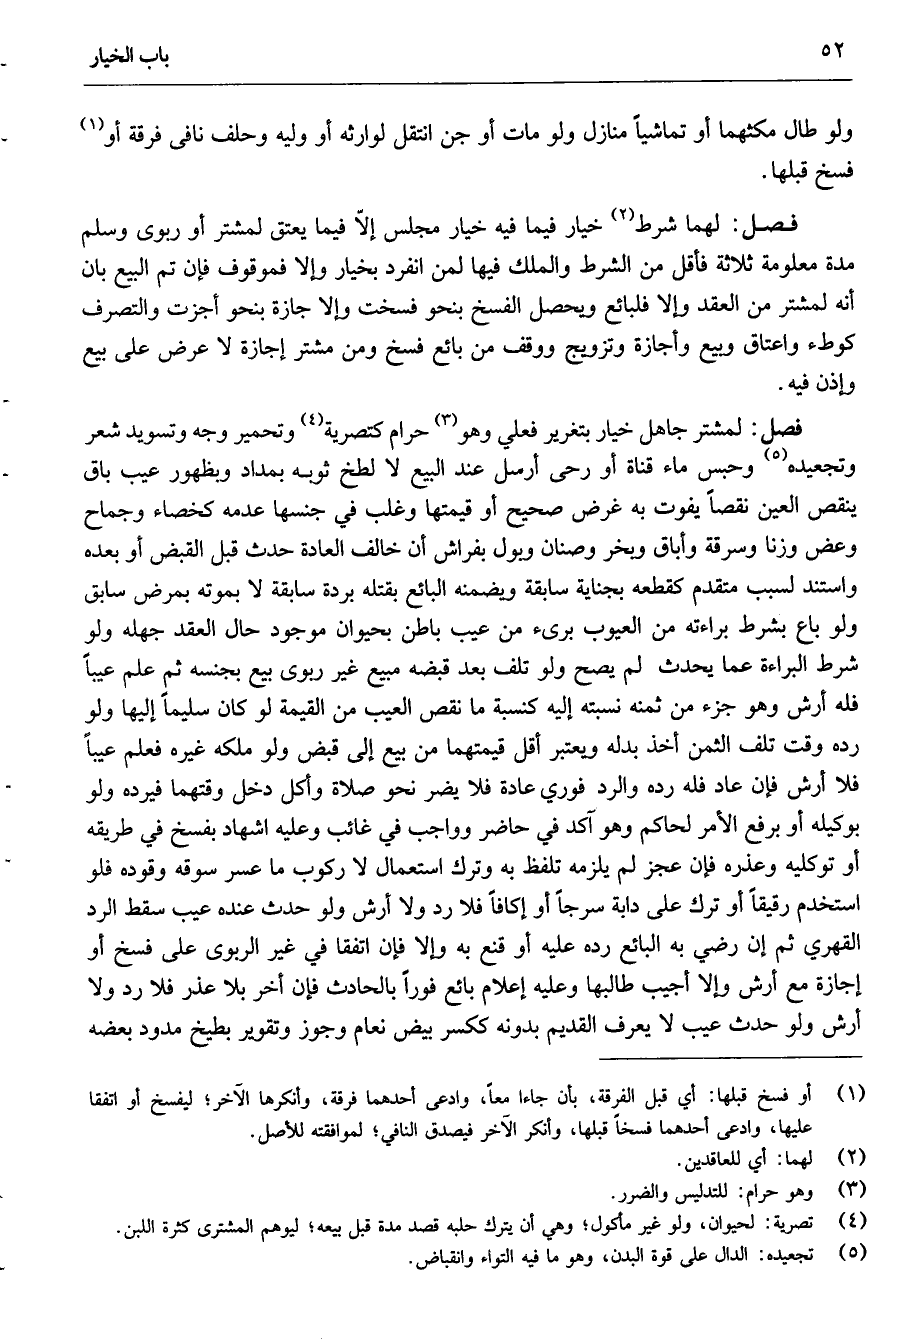 ٥٢
باب الخيار
ولو طال مكثهما أو تماشياً منازل ولو مات أو جن انتقل لوارثه أو وليه وحلف نافى فرقة أو(١)
فسخ قبلها.
فصل: لهما شرط(٢) خيار فيما فيه خيار مجلس إلاّ فيما يعتق لمشتر أو ربوى وسلم
مدة معلومة ثلاثة فأقل من الشرط والملك فيها لمن انفرد بخيار وإلا فموقوف فإن تم البيع بان
أنه لمشتر من العقد وإلا فلبائع ويحصل الفسخ بنحو فسخت وإلا جازة بنحو أجزت والتصرف
كوطء واعتاق وبيع وأجازة وتزويج ووقف من بائع فسخ ومن مشتر إجازة لا عرض على بيع
وإذن فيه.
فصل: لمشتر جاهل خيار بتغرير فعلي وهو(٣) حرام كتصرية(٤) وتحمير وجه وتسويد شعر
وتجعيده(٥) وحبس ماء قناة أو رحى أرسل عند البيع لا لطخ ثوبه بمداد وبظهور عيب باق
ينقص العين نقصاً يفوت به غرض صحيح أو قيمتها وغلب في جنسها عدمه كخصاء وجماح
وعض وزنا وسرقة وأباق وبخر وصنان وبول بفراش أن خالف العادة حدث قبل القبض أو بعده
واستند لسبب متقدم كقطعه بجناية سابقة ويضمنه البائع بقتله بردة سابقة لا بموته بمرض سابق
ولو باع بشرط براءته من العيوب برىء من عيب باطن بحيوان موجود حال العقد جهله ولو
شرط البراءة عما يحدث لم يصح ولو تلف بعد قبضه مبيع غير ربوى بيع بجنسه ثم علم عيباً
فله أرش وهو جزء من ثمنه نسبته إليه كنسبة ما نقص العيب من القيمة لو كان سليماً إليها ولو
رده وقت تلف الثمن أخذ بدله ويعتبر أقل قيمتهما من بيع إلى قبض ولو ملكه غيره فعلم عيباً
فلا أرش فإن عاد فله رده والرد فوري عادة فلا يضر نحو صلاة وأكل دخل وقتهما فيرده ولو
بوكيله أو برفع الأمر لحاكم وهو آكد في حاضر وواجب في غائب وعليه اشهاد بفسخ في طريقه
أو توكليه وعذره فإن عجز لم يلزمه تلفظ به وترك استعمال لا ركوب ما عسر سوقه وقوده فلو
استخدم رقيقاً أو ترك على دابة سرجاً أو إكافاً فلا رد ولا أرش ولو حدث عنده عيب سقط الرد
القهري ثم إن رضي به البائع رده عليه أو قنع به وإلا فإن اتفقا في غير الربوى على فسخ أو
إجازة مع أرش وإلا أجيب طالبها وعليه إعلام بائع فوراً بالحادث فإن أخر بلا عذر فلا رد ولا
أرش ولو حدث عيب لا يعرف القديم بدونه ككسر بيض نعام وجوز وتقوير بطيخ مدود بعضه
(١) أو فسخ قبلها: أي قبل الفرقة، بأن جاءا معاً، وادعى أحدهما فرقة، وأنكرها الآخر؛ ليفسخ أو اتفقا
عليها، وادعى أحدهما فسخاً قبلها، وأنكر الآخر فيصدق النافي؛ لموافقته للأصل.
(٢) لهما: أي للعاقدين.
(٣) وهو حرام: للتدليس والضرر.
(٤) تصرية: لحيوان، ولو غير مأكول؛ وهي أن يترك حلبه قصد مدة قبل بيعه؛ ليوهم المشترى كثرة اللبن.
(٥) تجعيده: الدال على قوة البدن، وهو ما فيه التواء وانقباض.